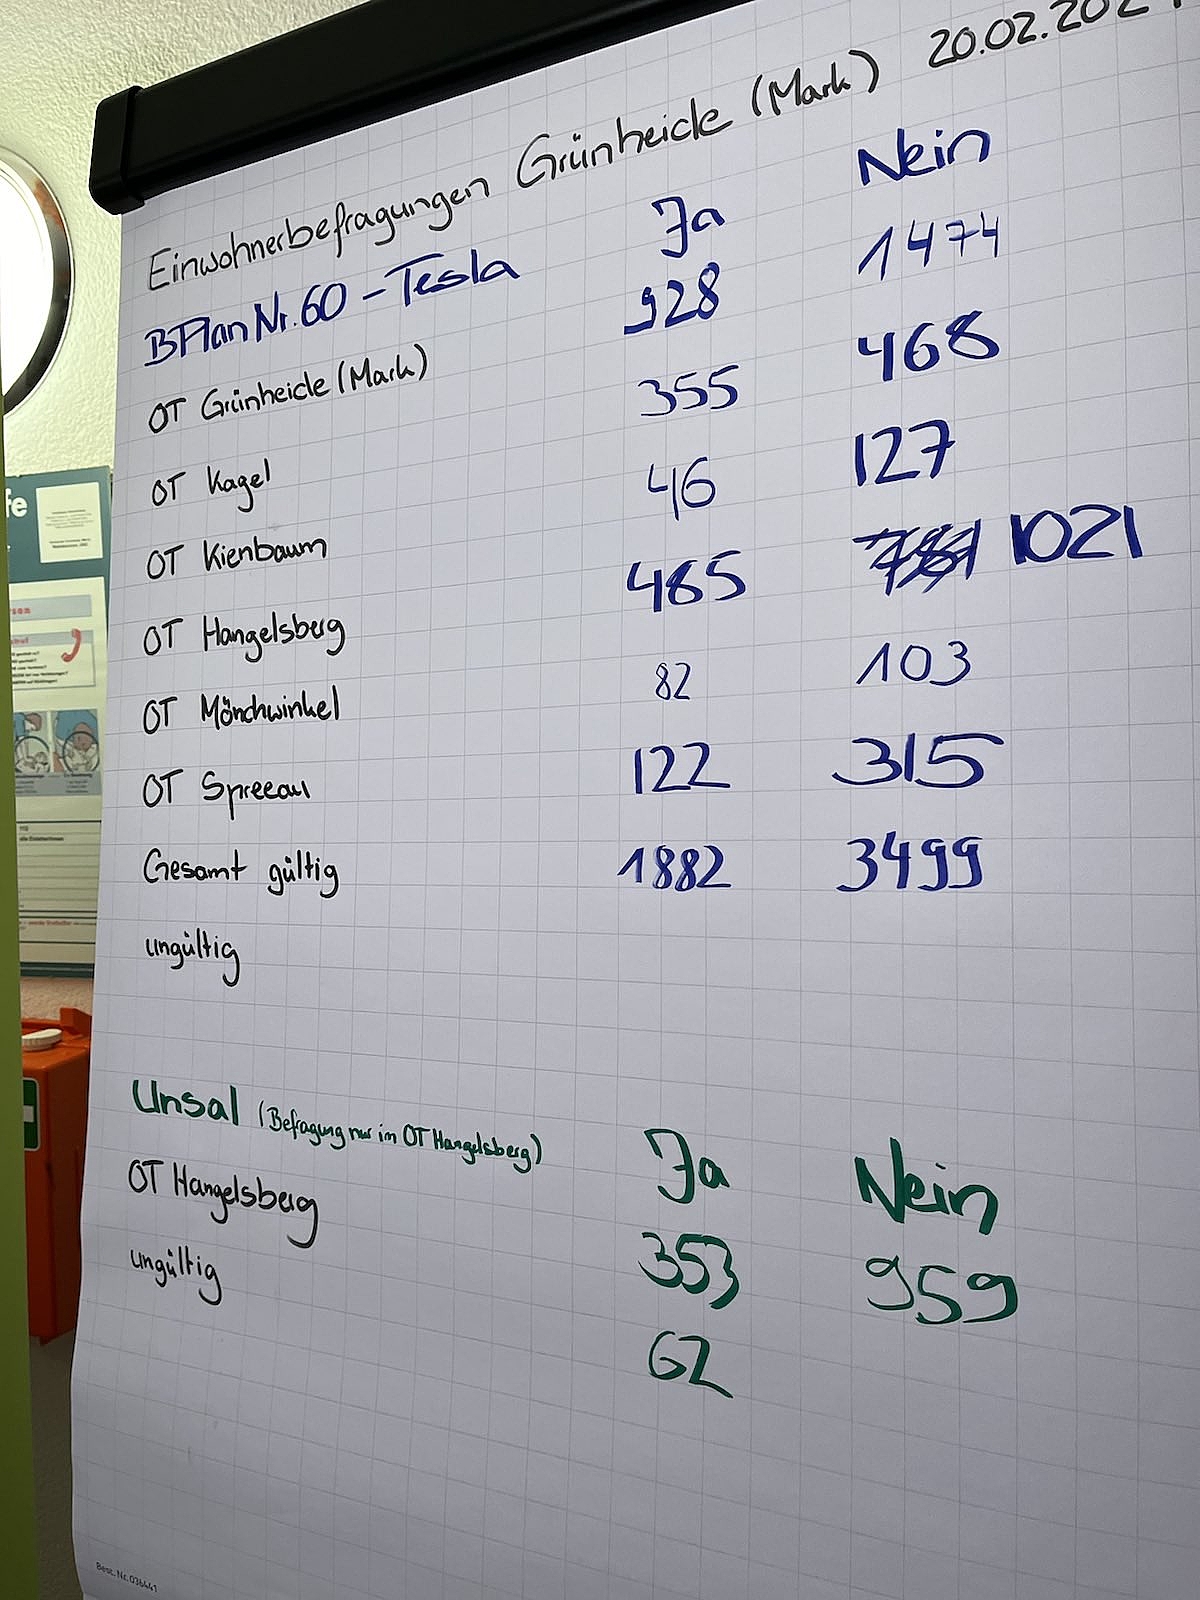 Einwohnerbefragungen Grünheide (Mark) 20.02.202
BPlan Nr.60 – Tesla Ja Nein
OT Grünheide (Mark) 928 1474
OT Kagel 355 468
OT Kienbaum 46 127
OT Hangelsberg 485 1021
OT Mönchwinkel 82 103
OT Spreeau 122 315
Gesamt gültig 1882 3499
ungültig
Unsal (Befragung nur im OT Hangelsberg) Ja Nein
OT Hangelsberg 353 959
ungültig 62
Best. Nr. 036441